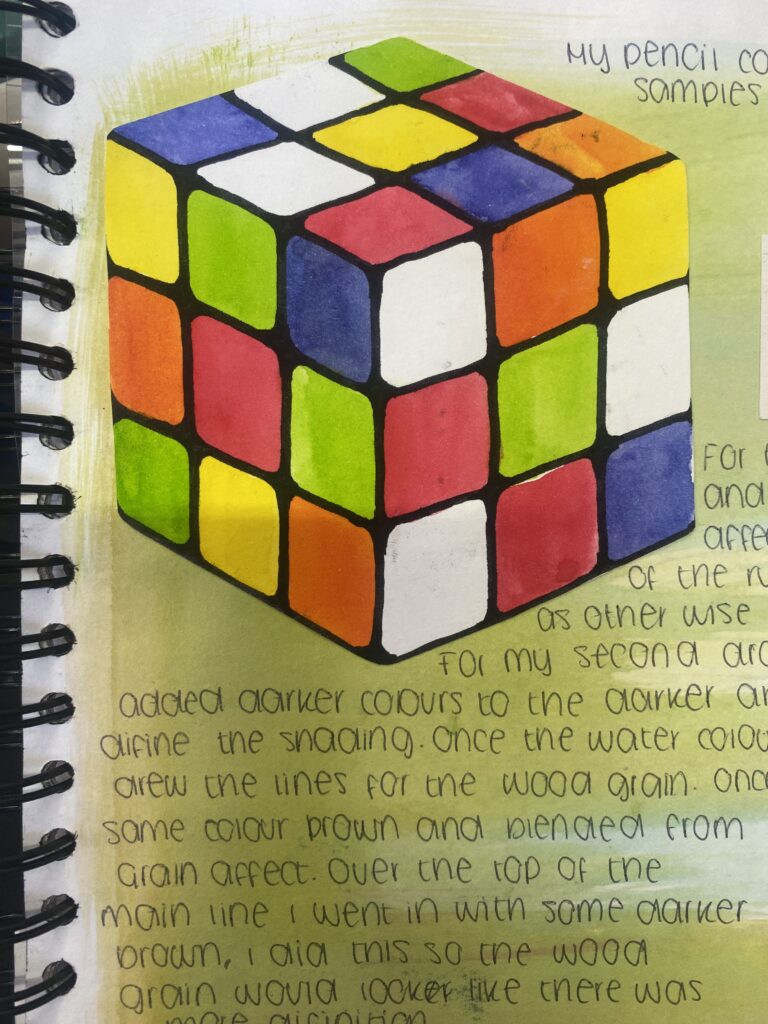 My pencil co
samples
For
and
affec
of the ru
as other wise
For my second dra
added darker colours to the darker ar
difine the shading. Once the water colou
drew the lines for the wood grain. Onc
same colour brown and blended from
grain affect. Over the top of the
main line i went in with some darker
brown, i did this so the wood
grain would locker like there was
more difinition